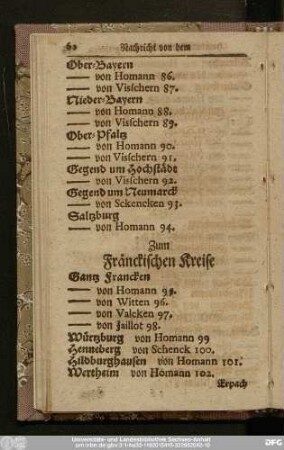 60 Nachricht von dem
Ober-Bayern
— von Homann 86.
— von Visschern 87.
Nieder-Bayern
— von Homann 88.
— von Visschern 89.
Ober-Pfaltz
— von Homann 90.
— von Visschern 91.
Gegend um Hochstädt
— von Visschern 92.
Gegend um Neumarck
— von Sckencken 93.
Saltzburg
— von Homann 94.
Zum
Fränckischen Kreise
Gantz Francken
— von Homann 95.
— von Witten 96.
— von Valcken 97.
— von Jaillot 98.
Würtzburg von Homann 99
Henneberg von Schenck 100.
Hildburghausen von Homann 101.
Wertheim von Homann 102.
Erpach
Universitäts- und Landesbibliothek Sachsen-Anhalt
DFG